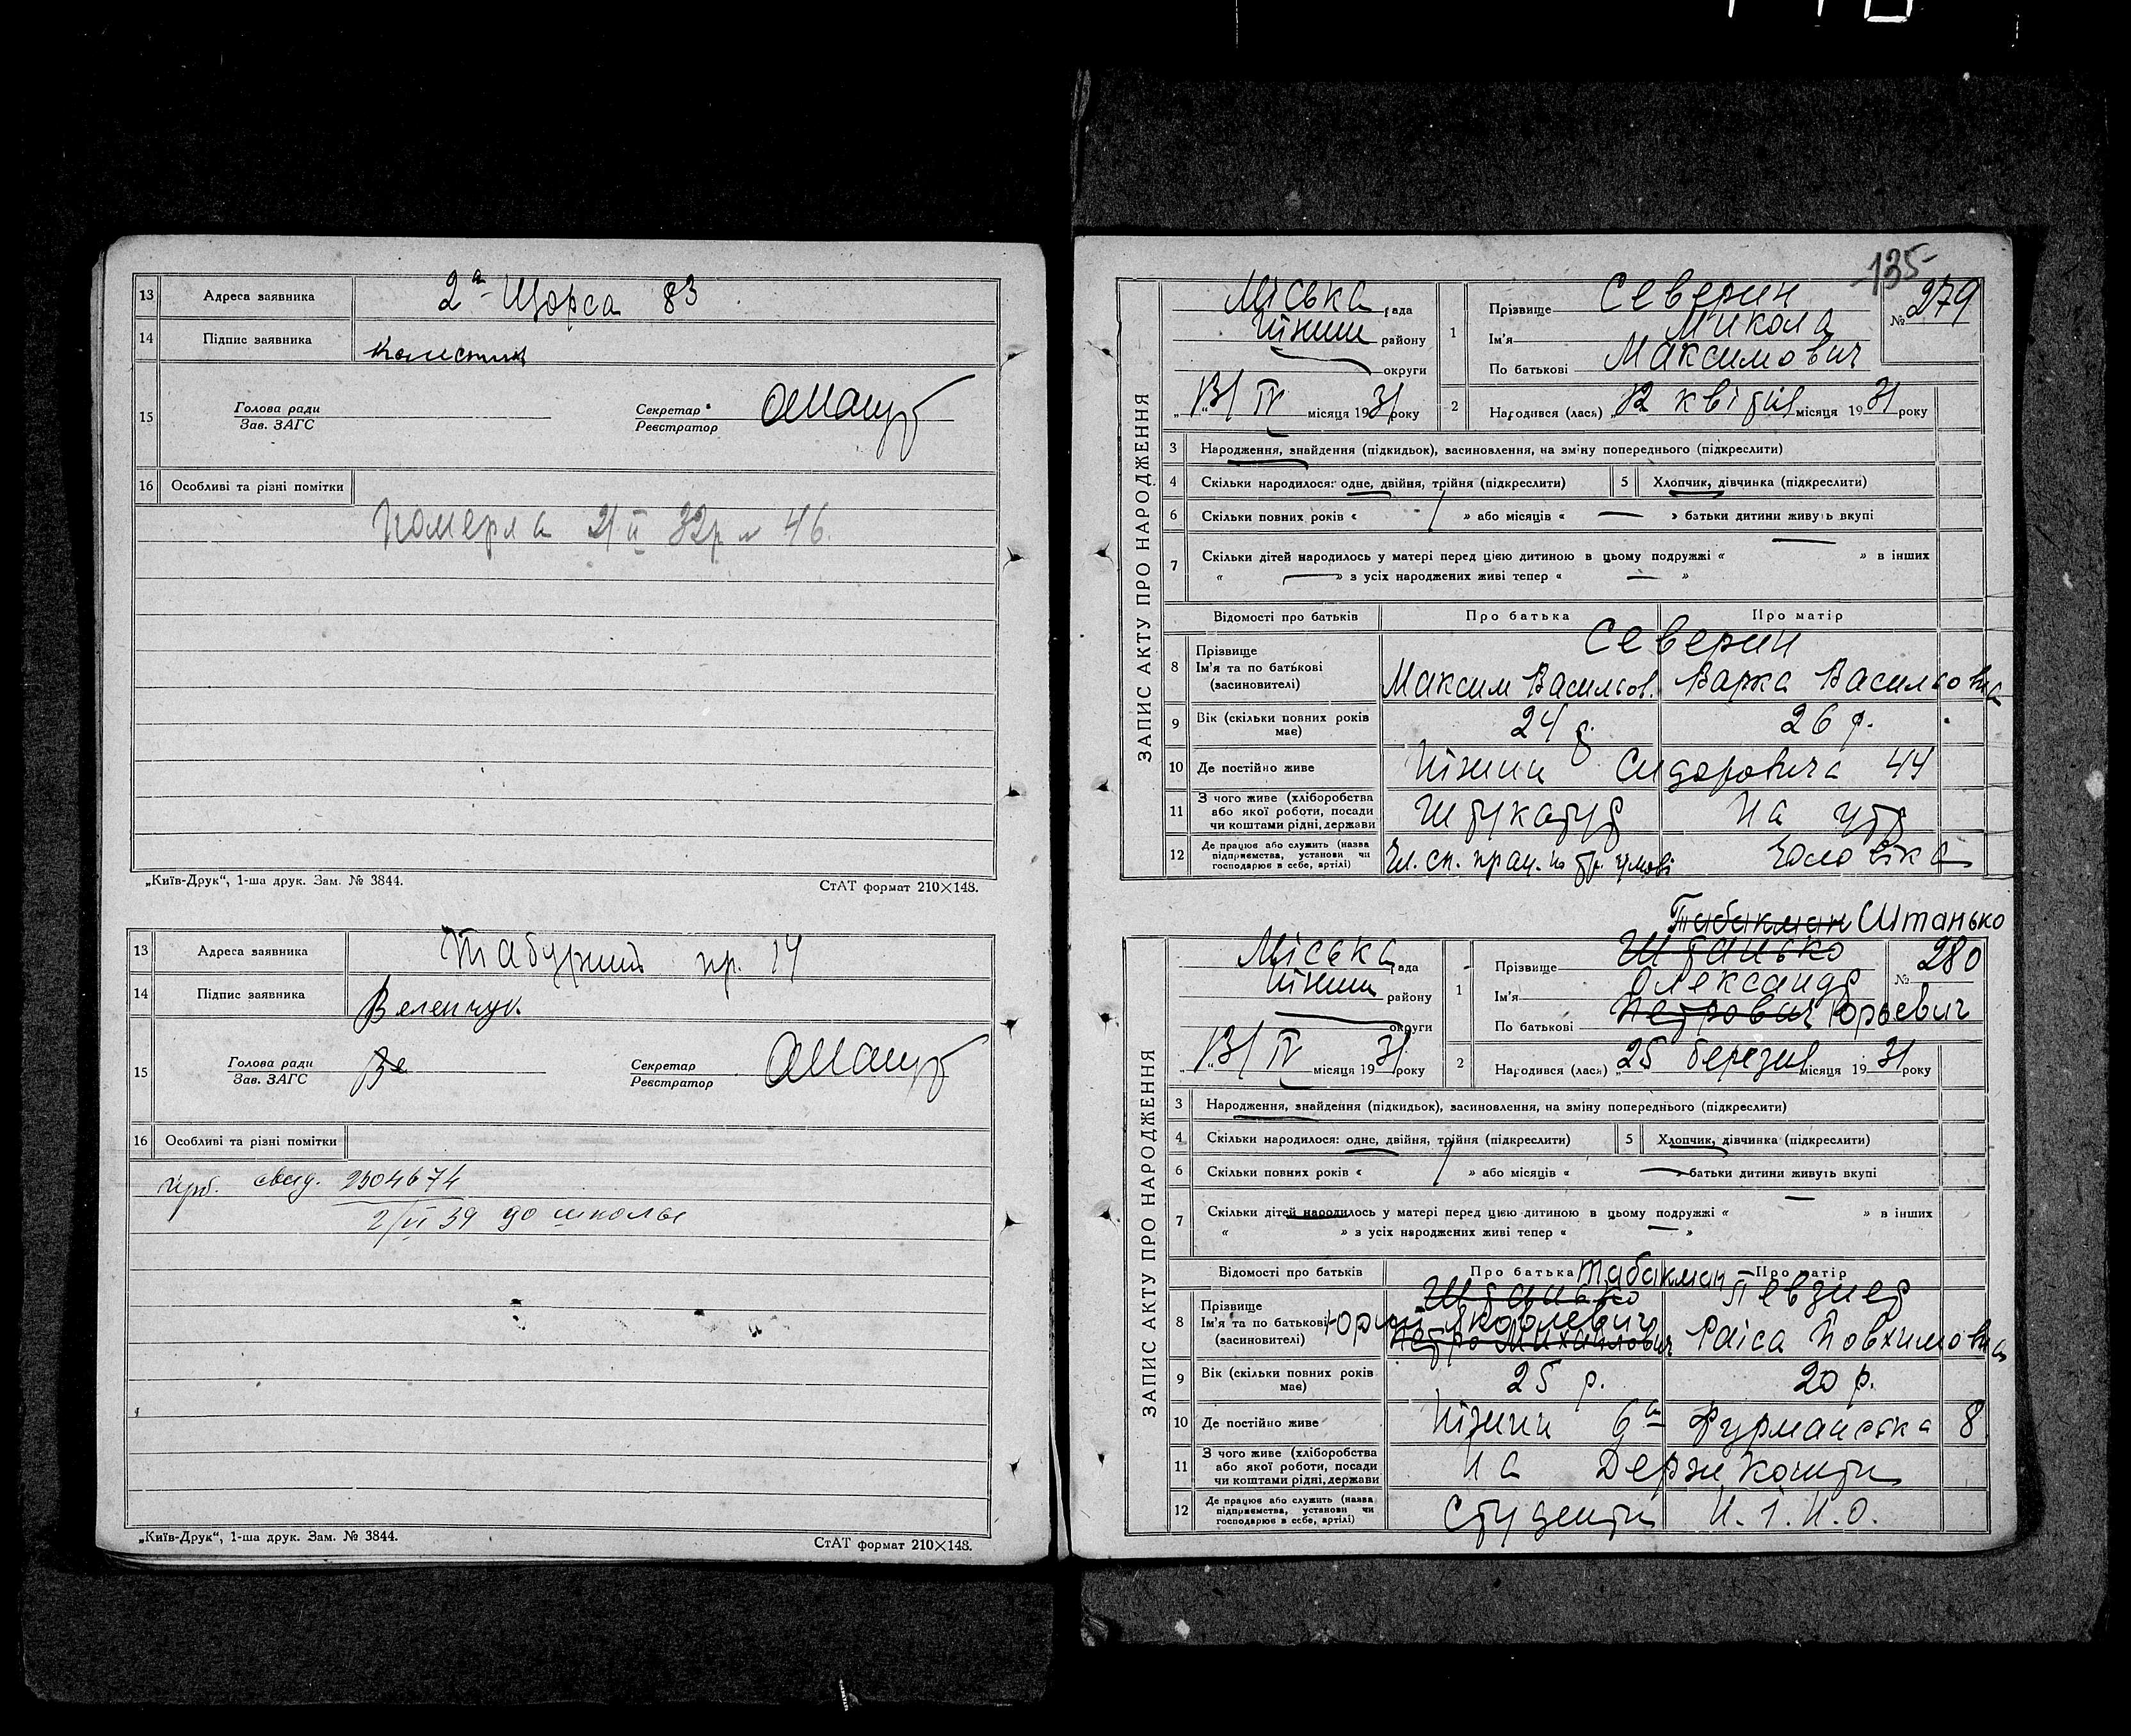 13 Адреса заявника 2а Щорса 83
14 Підпис заявника
15 Голова ради
Зав. ЗАГС
Секретар
Реєстратор
16 Особливі та різні помітки
Померла 2/ІІ 32р № 46.
„Київ-Друк“, 1-ша друк. Зам. № 3844.
СтАТ формат 210×148.
13 Адреса заявника Табурний пр. 14
14 Підпис заявника Веленчук.
15 Голова ради
Зав. ЗАГС
Ве
Секретар
Реєстратор
16 Особливі та різні помітки
свид. 2504674
2/VI 39 до школы
„Київ-Друк“, 1-ша друк. Зам. № 3844.
СтАТ формат 210×148.
135
ЗАПИС АКТУ ПРО НАРОДЖЕННЯ
Міська рада
Ніжин району
округи
„13/ IV місяця 1931 року
№ 279
1 Прізвище Северин
Ім'я Микола
По батькові Максимович
2 Народився (лась) „12 квітня місяця 1931 року
3 Народження, знайдення (підкидьок), васиновлення, на зміну попереднього (підкреслити)
4 Скільки народилося: одне, двійня, трійня (підкреслити)
5 Хлопчик, дівчинка (підкреслити)
6 Скільки повних років « / » або місяців « — » батьки дитини живуть вкупі
7 Скільки дітей народилось у матері перед цією дитиною в цьому подружжі « — » в інших
« — » з усіх народжених живі тепер « — »
Відомості про батьків Про батька Про матір
8 Прізвище
Ім'я та по батькові
(васиновителі)
Северин
Максим Васильов. Варка Васильовна
9 Вік (скільки повних років має) 24 р. 26 р.
10 Де постійно живе Ніжин Сидоровича 44
11 З чого живе (хліборобства або якої роботи, посади чи коштами рідні, держави Штукатур На утр
12 Де працює або служить (назва підприємства, установи чи господарює в себе, артілі) Чл. сп. прац. по тр. умові Чоловіка
ЗАПИС АКТУ ПРО НАРОДЖЕННЯ
Табакман Штанько
Міська рада
Ніжин району
округи
„13/ IV місяця 1931 року
№ 280
1 Прізвище Штанько
Ім'я Олександр
По батькові Петрович Юрьевич
2 Народився (лася) „25 березня місяця 1931 року
3 Народження, знайдення (підкидьок), васиновлення, на зміну попереднього (підкреслити)
4 Скільки народилося: одне, двійня, трійня (підкреслити)
5 Хлопчик, дівчинка (підкреслити)
6 Скільки повних років « / » або місяців « — » батьки дитини живуть вкупі
7 Скільки дітей народилось у матері перед цією дитиною в цьому подружжі « — » в інших
« » з усіх народжених живі тепер « — »
Відомості про батьків Про батька Про матір
8 Прізвище
Ім'я та по батькові
(васиновителі)
Табакман
Штанько Певзнер
Юрий Яковлевич
Петро Михайлович Раіса Йовхимовна
9 Вік (скільки повних років має) 25 р. 20 р.
10 Де постійно живе Ніжин 6а Фурманська 8
11 З чого живе (хліборобства або якої роботи, посади чи коштами рідні, держави На Держ кошти
12 Де працює або служить (назва підприємства, установи чи господарює в себе, артілі) Студенти Н.І.Н.О.